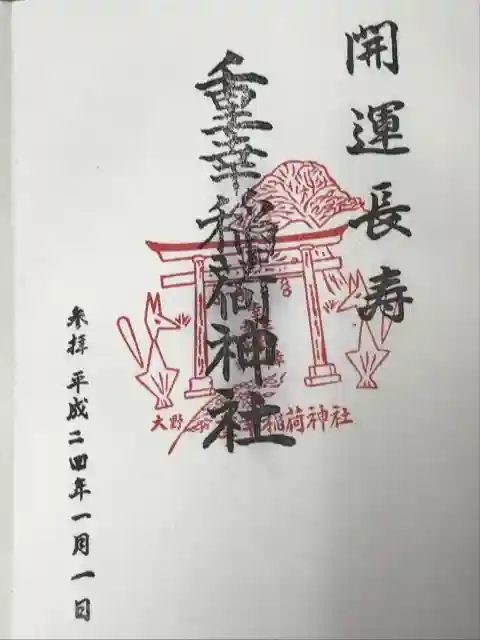 開運長寿
重幸稲荷神社
大野 稲荷神社
参拝 平成二四年一月一日